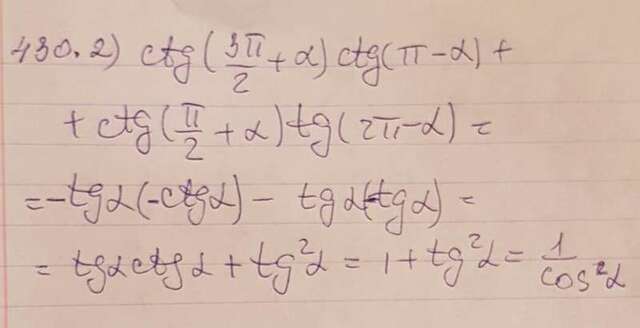 430. 2) ctg(3π/2 + α) ctg(π - α) +
+ ctg(π/2 + α) tg(2π - α) =
= -tgα(-ctgα) - tgα(-tgα) =
= tgα ctgα + tg²α = 1 + tg²α = 1/cos²α